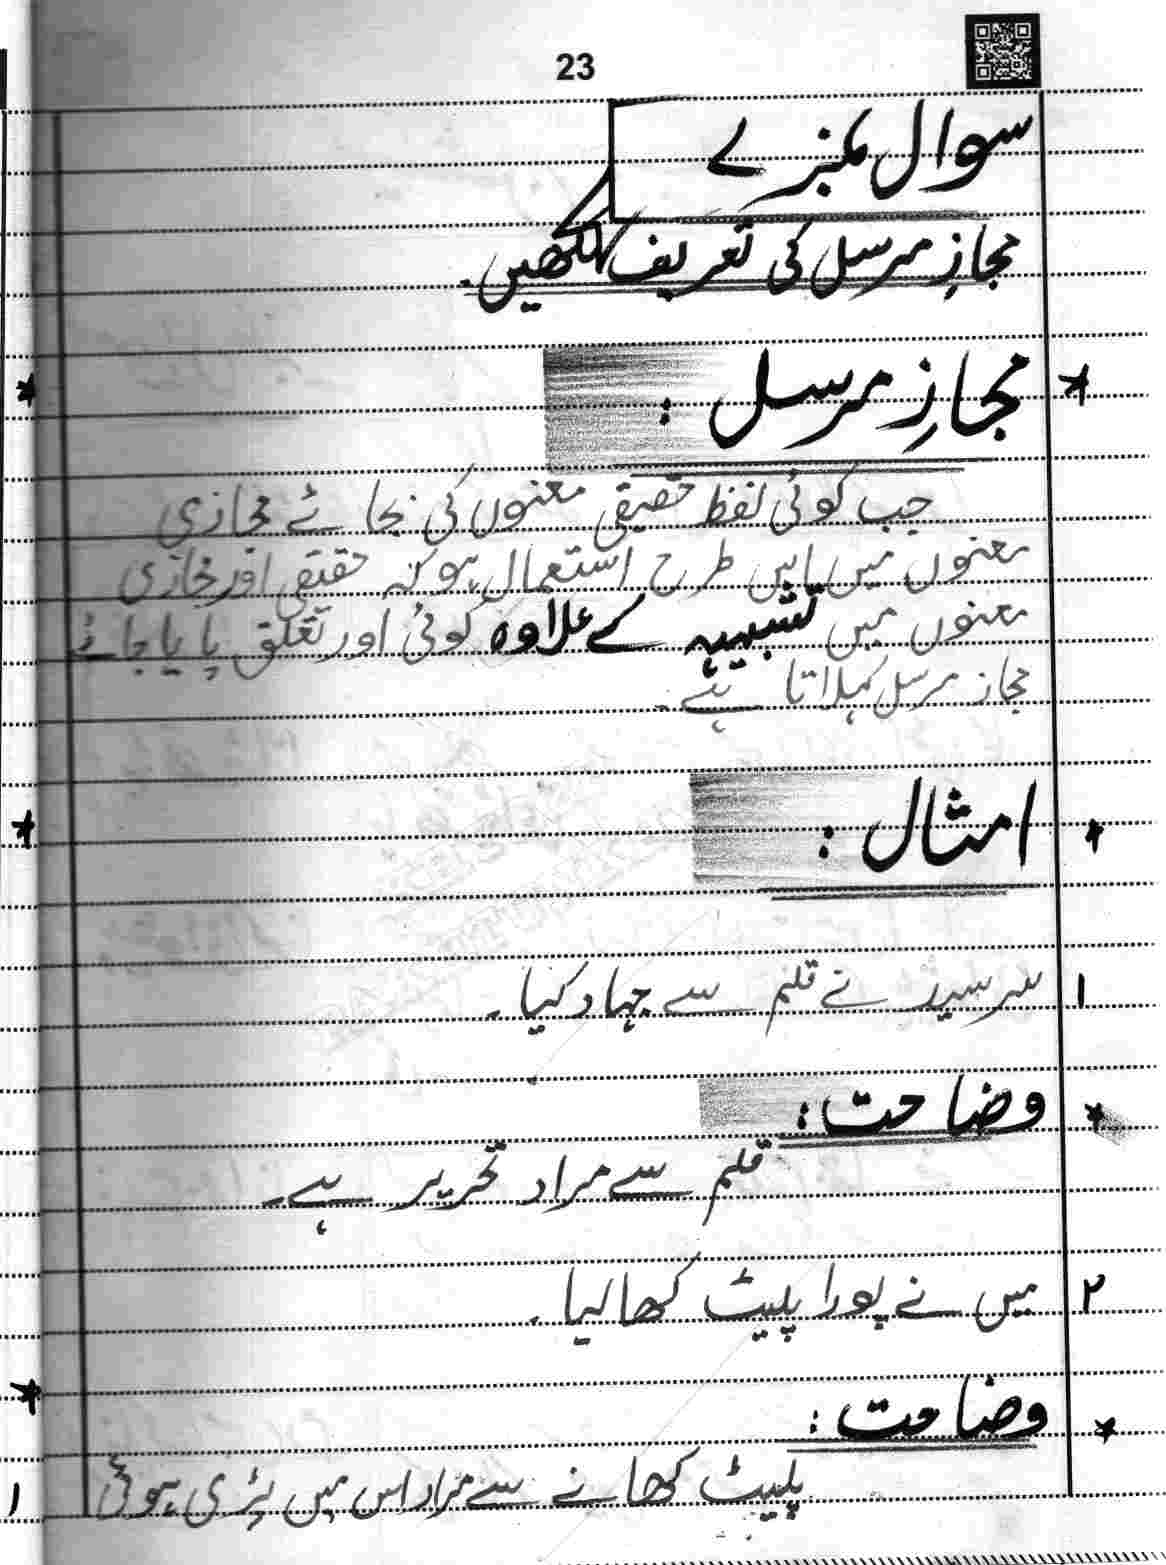 23
سوال نمبر ۷
مجازِ مرسل کی تعریف لکھیں۔
مجازِ مرسل :
جب کوئی لفظ حقیقی معنوں کی بجائے مجازی
معنوں میں اس طرح استعمال ہو کہ حقیقی اور مجازی
معنوں میں تشبیہہ کے علاوہ کوئی اور تعلق پایا جائے
مجاز مرسل کہلاتا ہے۔
امثال :
۱ سر سید نے قلم سے جہاد کیا۔
وضاحت :
قلم سے مراد تحریر ہے۔
۲ میں نے پورا پلیٹ کھا لیا۔
وضاحت :
پلیٹ کھانے سے مراد اس میں پڑی ہوئی